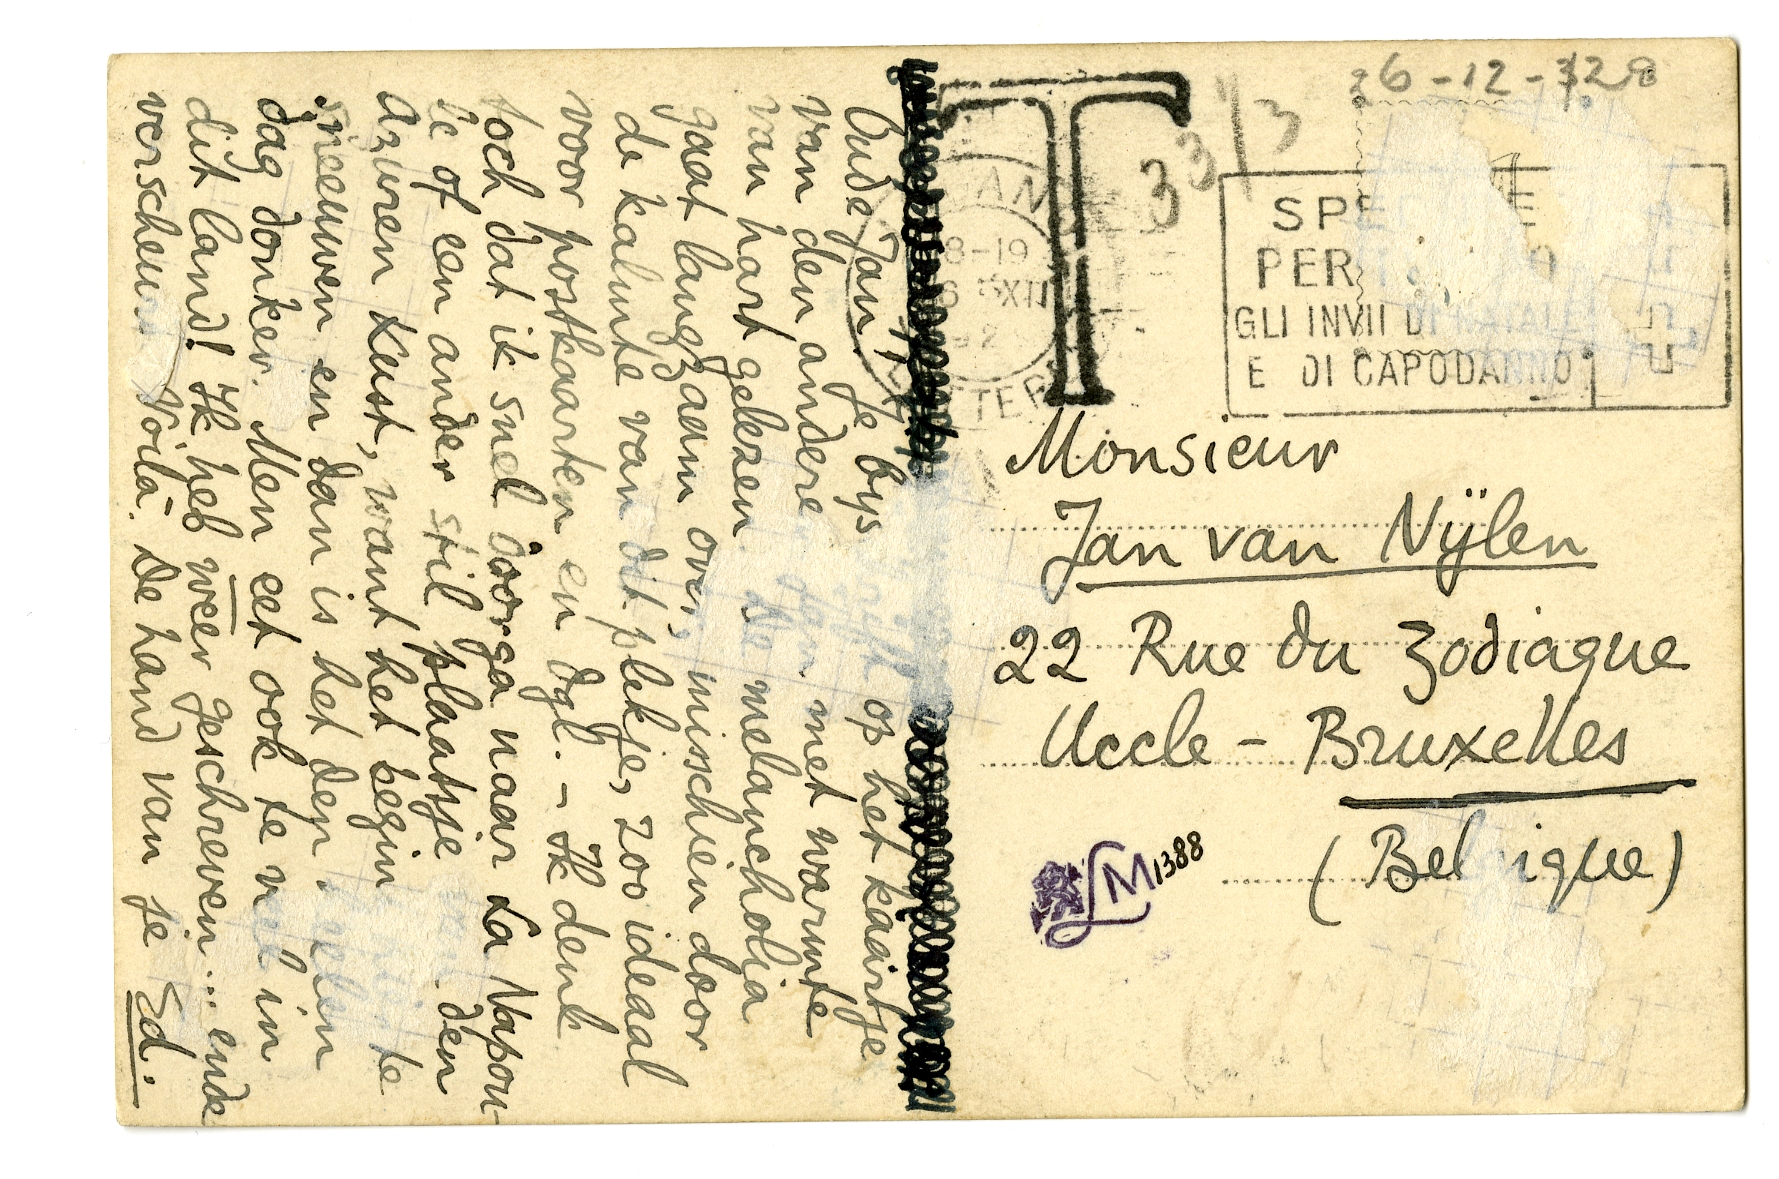 26-12-328
T
33 1/3
8-19
6 XII
92
SPE
PER
GLI INVII DI NATALE
E DI CAPODANNO
Monsieur
Jan van Nijlen
22 Rue du Zodiaque
Uccle - Bruxelles
(Belgique)
LM 1388
Oude Jan, Je bijs op het kaartje
van den andere met warmte
van hart gelezen. De melancholia
gaat langzaam over, misschien door
de kalmte van dit plekje, zoo ideaal
voor postkaarten en dgl. - Ik denk
toch dat ik snel doorga naar La Napou-
le of een ander stil plaatsje aan den
Azuren Kust, want het begint te
sneeuwen en dan is het den
dag donker. Men eet ook te veel in
dit land! Ik heb weer geschreven... ende
verscheurd. Voilà. De hand van je Ed.